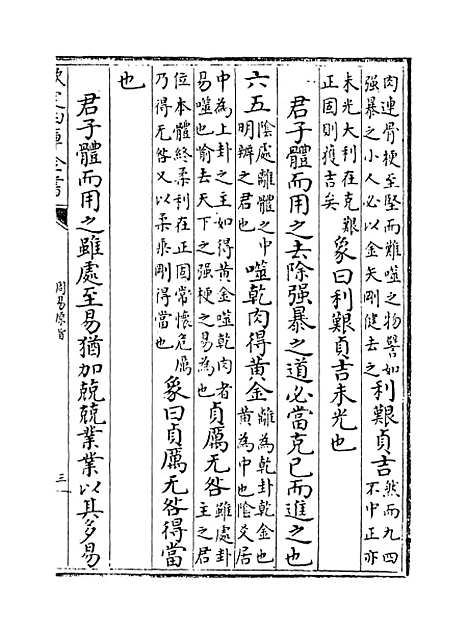 肉連骨梗至堅而難噬之物譬如
强暴之小人必以金矢剛健去之
利艱貞吉
然而九四
不中正亦
未光大利在克艱
正固則獲吉矣
象曰利艱貞吉未光也
君子體而用之去除强暴之道必當克己而進之也
六五
陰處離體之中
明辨之君也
噬乾肉得黄金
離為乾卦乾金也
黄為中也陰爻居
中為上卦之主如得黄金噬乾肉者
易噬也喻去天下之强梗之易為也
貞厲无咎
雖處卦
主之君
位本體終柔利在正固常懷危厲
乃得无咎又以柔乘剛得當也
象曰貞厲无咎得當
也
君子體而用之雖處至易猶加兢兢業業以其多易
欽定四庫全書
周易原旨
三